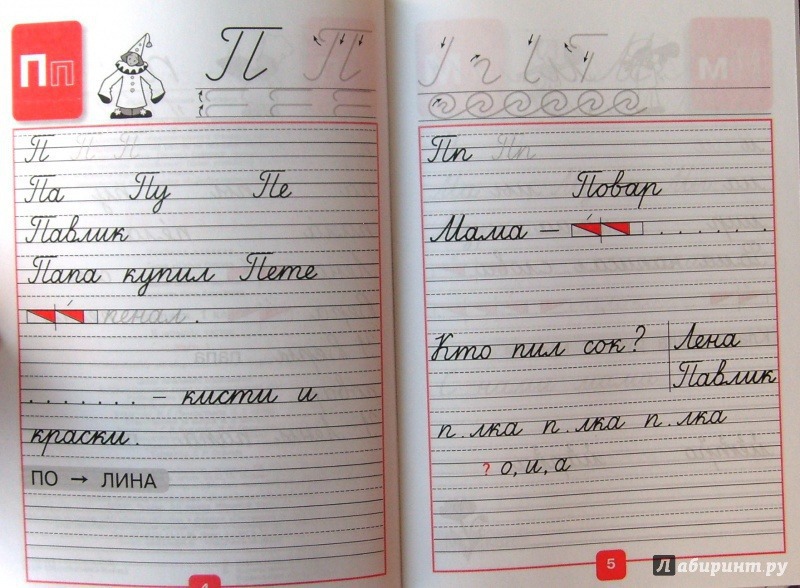 Пп
П П
П П П
Па Пу Пе
Павлик
Папа купил Пете
пенал .
. . . . . . . – кисти и
краски.
ПО → ЛИНА
4
Пп Пп
Повар
Мама – . . . . . .
Кто пил сок? Лена
Павлик
п . лка п . лка п . лка
? о, и, а
5
Лабиринт.ру